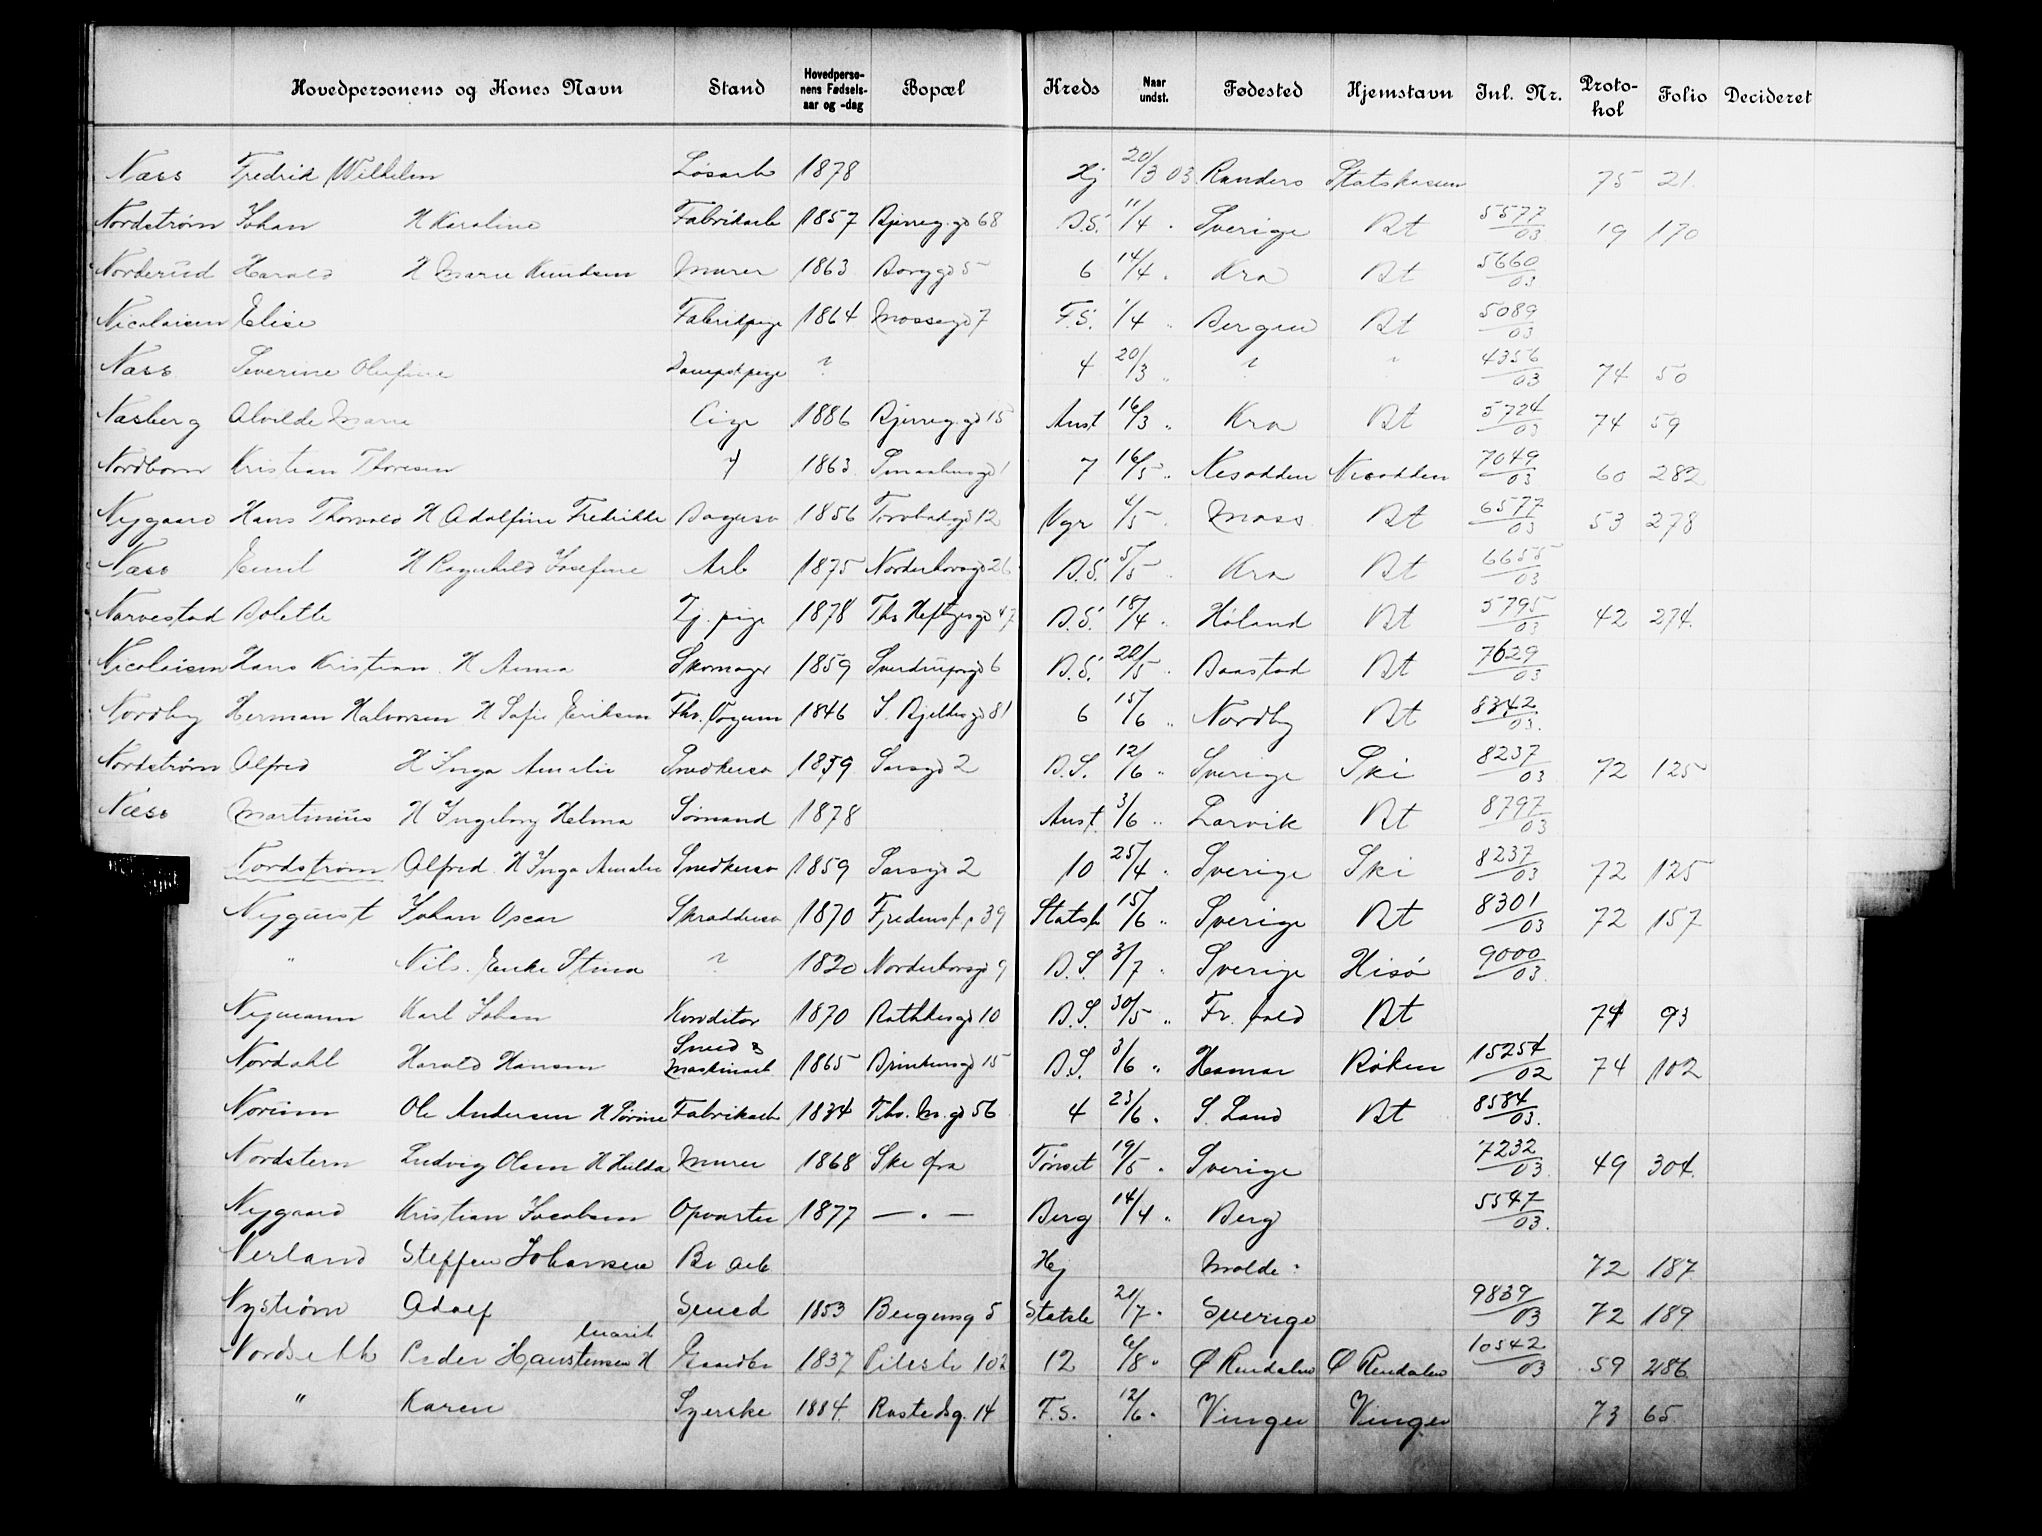 Hovedpersonens og Kones Navn Stand Hovedperso-nens Fødsels-aar og -dag Bopæl Kreds Naar undst. Fødested Hjemstavn Inl. Nr. Proto-kol Folio Decideret
Næss Fredrik Wilhelm Løsarb 1878 Hj 20/3 03 Randers Statskassen 75 21
Nordstrøm Johan H Karoline Fabrikarb 1857 Bjerreg.gd 68 B.S. 11/4 Sverige Bt 5577/03 19 170
Norderud Harald H Marie Knudsen Murer 1863 Borggd 5 6 14/4 " Kra Bt 5660/03
Nicolaisen Elise Fabrikpige 1864 Mossegd 7 F.S. 1/4 " Bergen Bt 5089/03
Næss Severine Olufine ? 4 20/3 " ? " 4356/03 74 50
Næsberg Alvilde Marie Pige 1886 Bjerreg.gd 15 Anst 16/3 " Kra Bt 5724/03 74 59
Nordbom Kristian Thoresen ? 1863 Smaalensgd 1 7 16/5 " Nesodden Nesodden 7049/03 60 282
Nygaard Hans Thorvald H Adolfine Fredrikke Bagersv 1856 Torvbakgd 12 Vgr 4/5 Moss Bt 6577/03 53 278
Næss Emil H Ragnhild Josefine Arb 1875 Norderhovsgd 26 B.S. 5/5 Kra Bt 6655/03
Narvestad Bolette Tj. pige 1878 Ths Heftyesgd 47 B.S. 18/4 " Høland Bt 5795/03 42 274
Nicolaisen Hans Kristian H Anna Skomager 1859 Sverdrupsgd 6 B.S. 20/5 Baastad Bt 7629/03
Nordby Herman Halvorsen H Sofie Eriksen Fhv. Vognm 1846 S. Bjeltesgd 81 6 15/6 " Nordby Bt 8342/03
Nordstrøm Alfred H Inga Amalie Snedkersv 1859 Sarsgd 2 B.S. 12/6 " Sverige Ski 8237/03 72 125
Næss Martinius H Ingeborg Helma Sømand 1878 Anst. 3/6 " Larvik Bt 8797/03
Nordstrøm Alfred H Inga Amalie Snedkersv 1859 Sarsgd 2 10 25/4 " Sverige Ski 8237/03 72 125
Nyquist Johan Oscar Skræddersv 1870 39 Statsk 15/6 " Sverige Bt 8301/03 72 157
" Nils. Enke Stina ? 1820 Norderhovsgd 9 B.S. 3/7 " Sverige Hisø 9000/03
Nymann Karl Johan Konditor 1870 Rathkesgd 10 B.S. 30/5 " Fr. hald Bt 74 93
Nordahl Harald Hansen Smed & Maskinarb 1865 Brinkensgd 15 B.S. 3/6 " Hamar Røken 15254/02 74 102
Norum Ole Andersen H Sørine Fabrikarb 1834 Thv. M. gd 56 4 23/6 " S. Land Bt 8584/03
Nordstern Ludvig Olsen H Hulda Murer 1868 Ske fra Tønset 19/5 " Sverige 7232/03 49 304
Nygaard Kristian Jacobsen Opvarter 1877 — . — Berg 14/4 " Berg 5547/03
Nerland Steffen Johansen Br arb Hj Molde 72 187
Nystrøm Adolf Smed 1853 Bergensg 5 Statsk 21/7 " Sverige 9839/03 72 189
Nordseth Peder Haustensen H Marit Gaardbr 1837 Pilestr 102 12 6/8 " Ø Rendalen Ø Rendalen 10542/03 59 286
" Karen Syerske 1884 Rostedsg. 14 F.S. 12/6 " Vinger Vinger 73 65